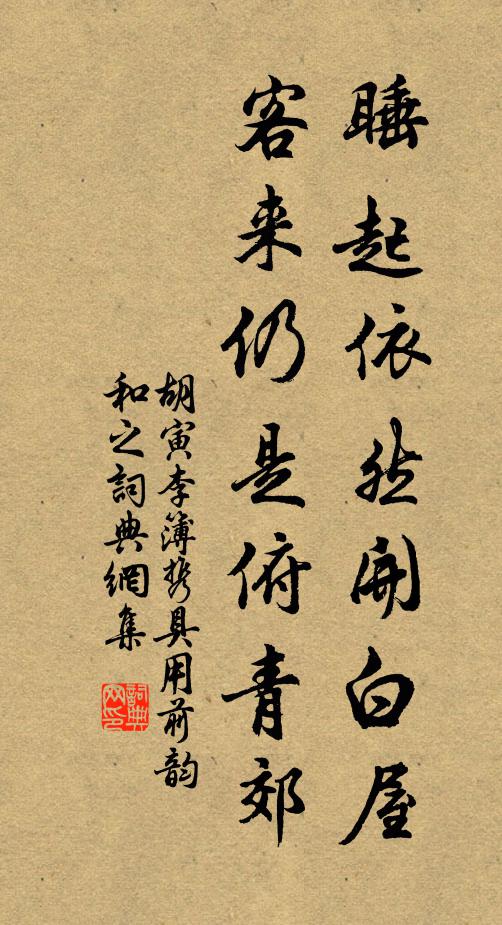 睡起依然開白屋
客来仍是俯青郊
胡寅李簿携具用前韵
和之詞典網集
詞典網印